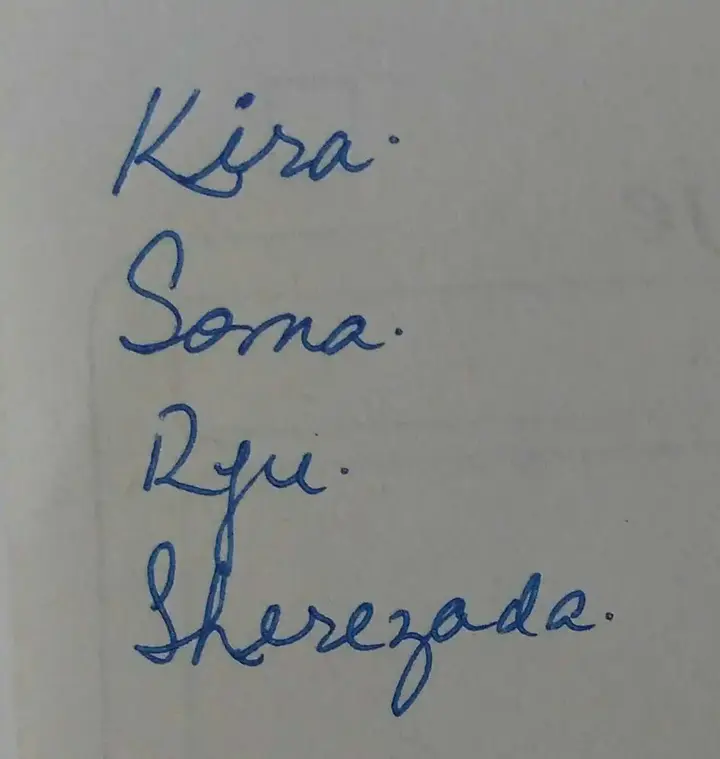 Kira.
Soma.
Ryu.
Sherezada.